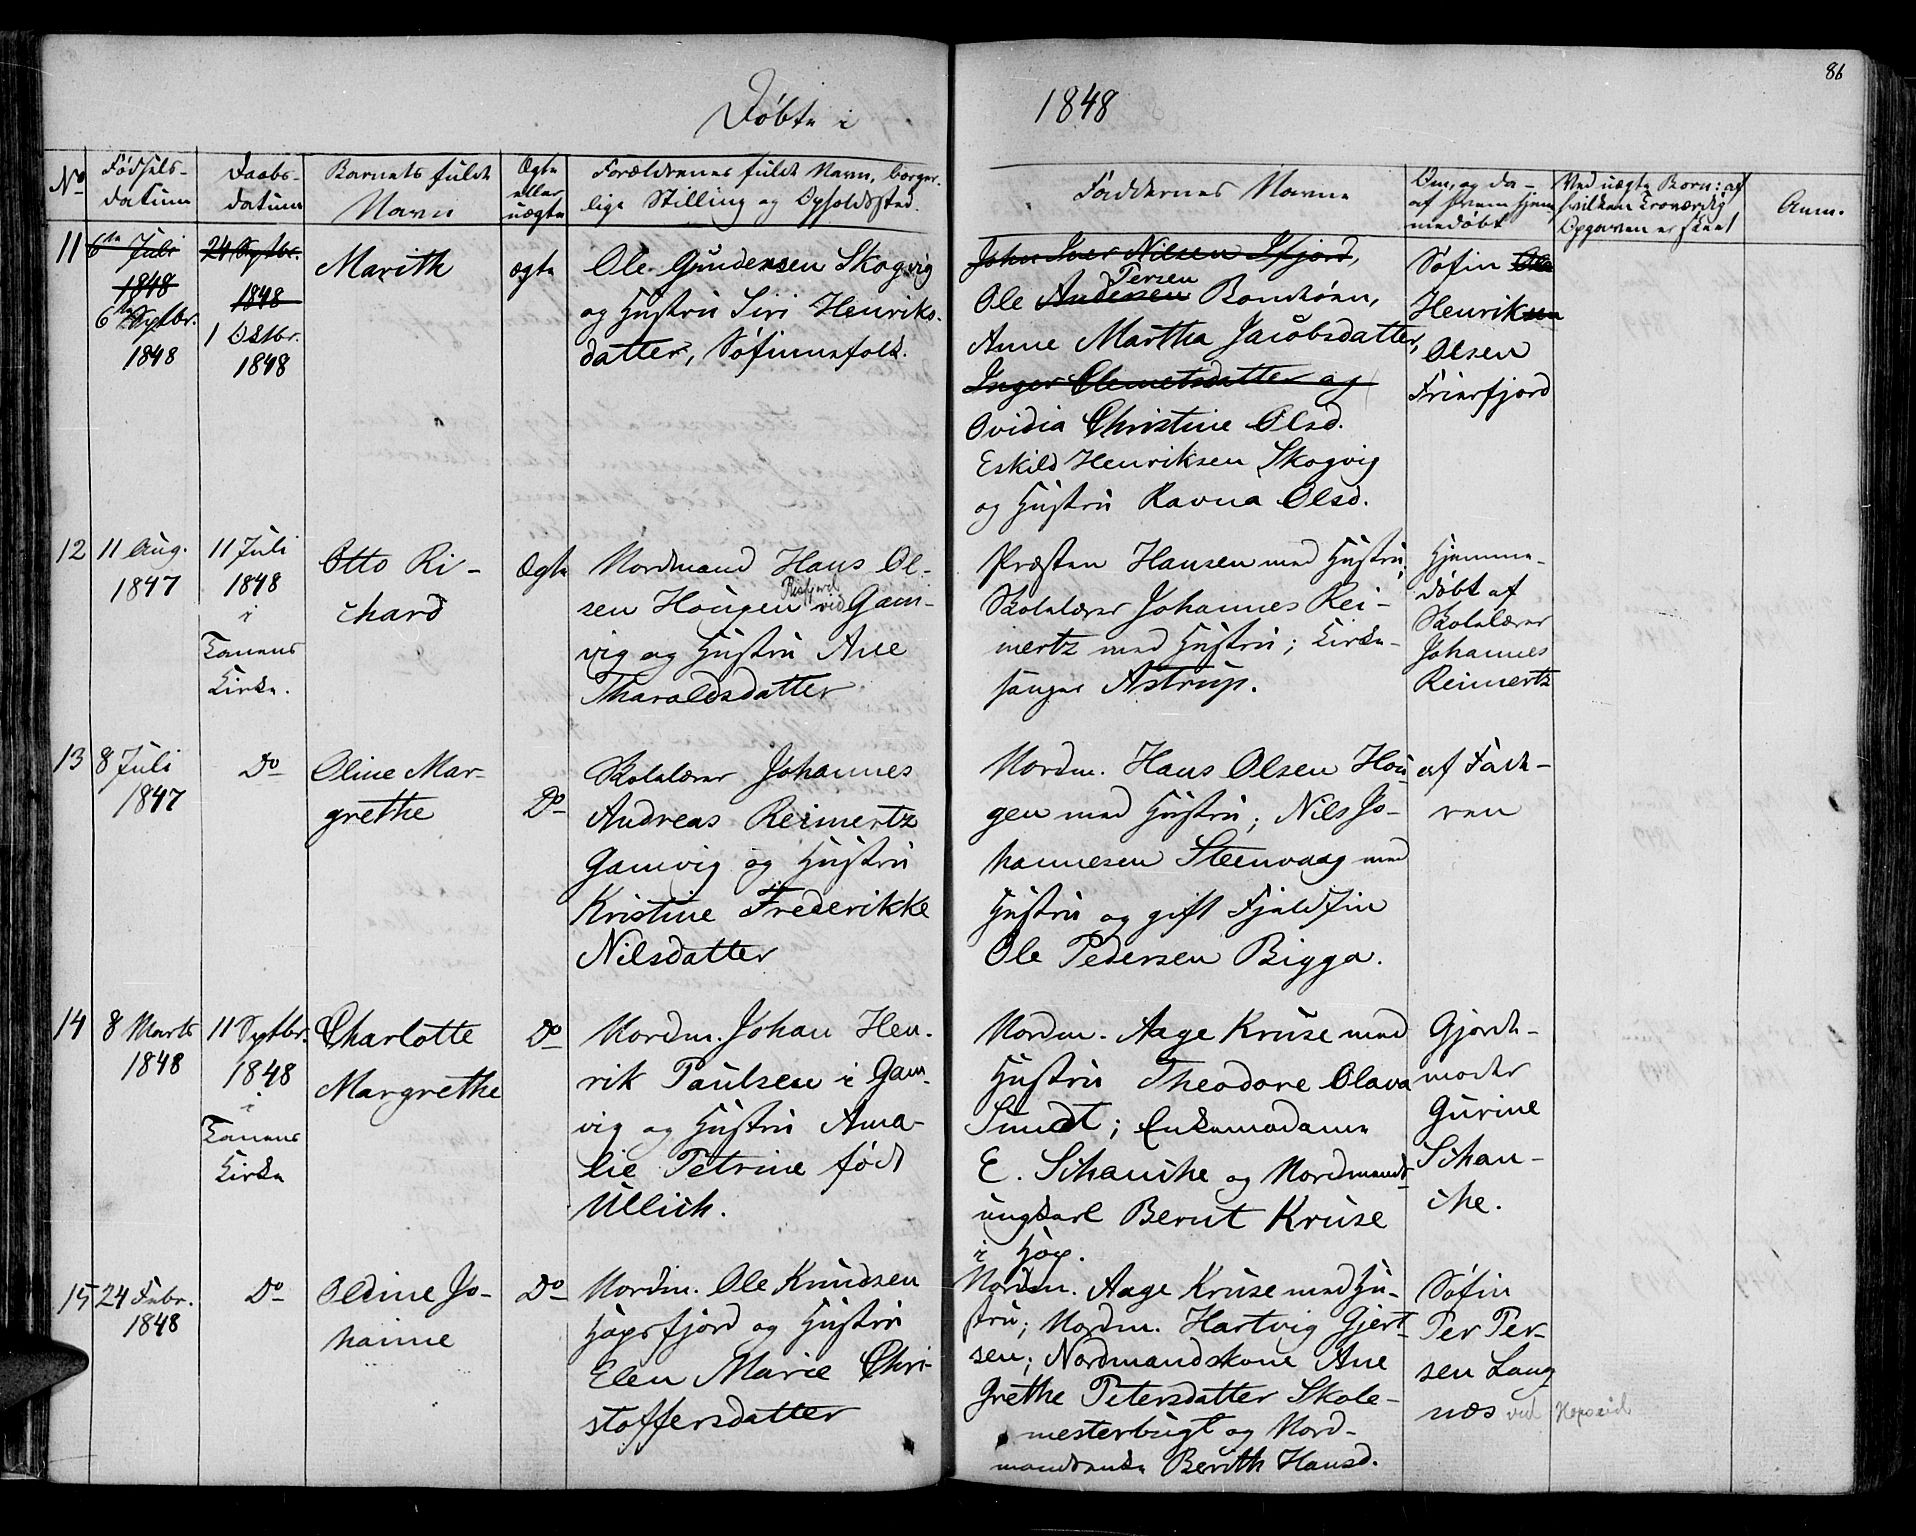 86
Døbte i 1848
No
Fødsels-
datum
Daabs-
datum
Barnets fulde
Navn
Ægte
eller
uægte
Forældrenes fulde Navn, borger-
lige Stilling og Opholdssted.
Faddernes Navne
Om, og da
af hvem hjem-
medøbt
Ved uægte Børn: af
hvilken troværdig
Opgaven er skeet
Anm.
11
6te Juli
1848
6te Septbr.
1848
24 Septbr.
1848
1 Oktbr.
1848
Marith
ægte
Ole Gundersen Skogvig
og Hustru Siri Henriks-
datter, Søfinnefolk.
John Iver Nilsen Ifjord,
Ole Andersen Persen Bonakøen,
Anne Martha Jacobsdatter,
Inger Clemetsdatter og
Ovidia Christine Olsd.
Eskild Henriksen Skogvig
og Hustru Ravna Olsd.
Søfin Ole
Henriksen
Olsen
Frierfjord
12
11 Aug.
1847
11 Juli
1848
i
Tanens
Kirke.
Otto Ri-
chard
Ægte
Nordmand Hans Ol-
sen Hougen Risfjord vid Gam-
vig og Hustru Ane
Tharaldsdatter
Præsten Hansen med Hustru,
Skolelærer Johannes Rei-
mertz med Hustru; Kirke-
sanger Astrup.
Hjemme-
døbt af
Skolelærer
Johannes
Reimertz
13
8 Juli
1847
Do
Oline Mar-
grethe
Do
Skolelærer Johannes
Andreas Reimertz
Gamvig og Hustru
Kristine Frederikke
Nilsdatter
Nordm. Hans Olsen Hou-
gen med Hustru; Nils Jo-
hannesen Steenvaag med
Hustru og gift Fjeldfin
Ole Pedersen Bigga.
af Fade-
ren
14
8 Marts
1848
11 Septbr.
1848
i
Tanens
Kirke
Charlotte
Margrethe
Do
Nordm. Johan Hen-
rik Paulsen i Gam-
vig og Hustru Ama-
lie Petrine født
Ullich.
Nordm. Aage Kruse med
Hustru Theodore Olava
Smidt; Enkemadame
E. Schanche og Nordmands-
ungkarl Bernt Kruse
i Hop.
Gjorde-
moder
Gurine
Schan-
che.
15
24 Febr.
1848
Do
Oldine Jo-
hanne
Do
Nordm. Ole Knudsen
Hopsfjord og Hustru
Elen Marie Chri-
stoffersdatter
Nordm. Aage Kruse med Hu-
stru; Nordm. Hartvig Gjert-
sen; Nordmandskone Ane
Grethe Petersdatter Skole-
mesterbugt og Nord-
mandsenke Berith Hansd.
Søfin
Per Per-
sen Lang-
næs ved Hopseid